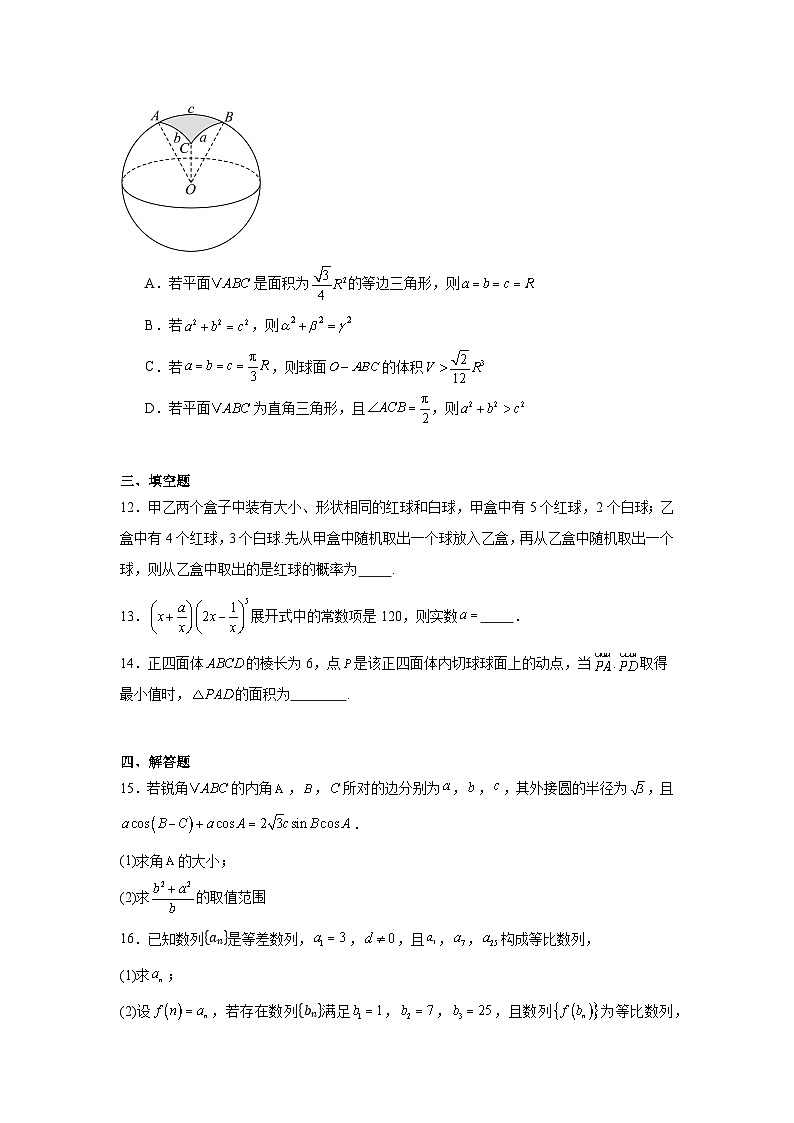 A c B
b C a
O
A．若平面∨ABC是面积为\frac{\sqrt{3}}{4}R²的等边三角形，则a=b=c=R
B．若a²+b²=c²，则α²+β²=γ²
C．若a=b=c=\frac{π}{3}R，则球面O−ABC的体积V>\frac{\sqrt{2}}{12}R³
D．若平面∨ABC为直角三角形，且∠ACB=\frac{π}{2}，则a²+b²>c²
三、填空题
12．甲乙两个盒子中装有大小、形状相同的红球和白球，甲盒中有5个红球，2个白球；乙
盒中有4个红球，3个白球.先从甲盒中随机取出一个球放入乙盒，再从乙盒中随机取出一个
球，则从乙盒中取出的是红球的概率为_____.
13．(x+\frac{a}{x})(2x−\frac{1}{x})⁵展开式中的常数项是120，则实数a=_____．
14．正四面体ABCD的棱长为6，点P是该正四面体内切球球面上的动点，当PA·PD取得
最小值时，△PAD的面积为________.
四、解答题
15．若锐角∨ABC的内角A，B，C所对的边分别为a，b，c，其外接圆的半径为√3，且
acos(B−C)+acosA=2√3csinBcosA．
(1)求角A的大小；
(2)求\frac{b²+a²}{b}的取值范围
16．已知数列{aₙ}是等差数列，a₁=3，d≠0，且a₁，a₇，a₂₅构成等比数列，
(1)求aₙ；
(2)设f(n)=aₙ，若存在数列{bₙ}满足b₁=1，b₂=7，b₃=25，且数列{f(bₙ)}为等比数列，